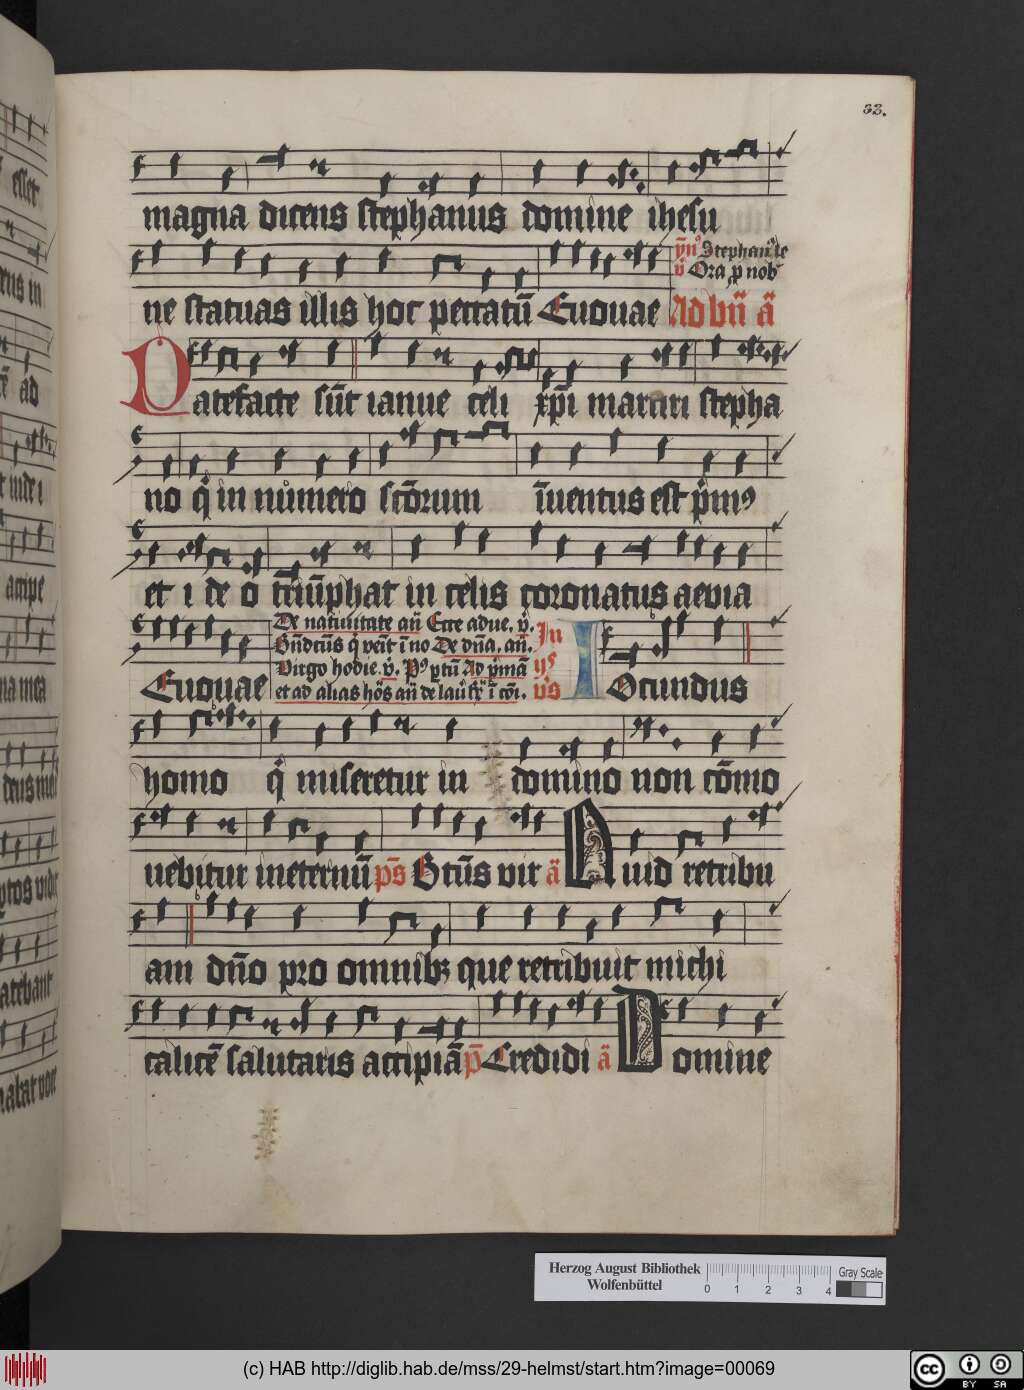 33.
magna dicens stephanus domine ihesu
ne statuas illis hoc peccatū Euouae
Stephan9 le
v̄ Ora p nob
Ad bn̄ ā
Patefacte sūt ianue celi xp̄i martiri stepha
no q̇ in numero sc̄orum īuentus est ṗm9
et i de o t͞ūphat in celis coronatus aevia
Euouae
De natiuitate an̄ Ecce adue. v̇.
Bn̄dcūs q̇ veīt ī no De dn̄a. an̄.
Virgo hodie. v̇. P9 ptū Ad ṗmā
et ad alias ho͞s an̄ de lau
In
ijs
v̄s
IOcundus
homo q̇ miseretur in domino non cōmo
uebitur ineternū ps̄ Btūs vir ā Quid retribu
am dn̄o pro omnibꝫ que retribuit michi
calicē salutaris accipiā p̄ Credidi ā Domine
esset
rus in
ē ad
t inde i
accipe
na mea
deus me
ptos vidi
atebant
Herzog August Bibliothek
Wolfenbüttel
Gray Scale
0 1 2 3 4
(c) HAB http://diglib.hab.de/mss/29-helmst/start.htm?image=00069
cc BY SA